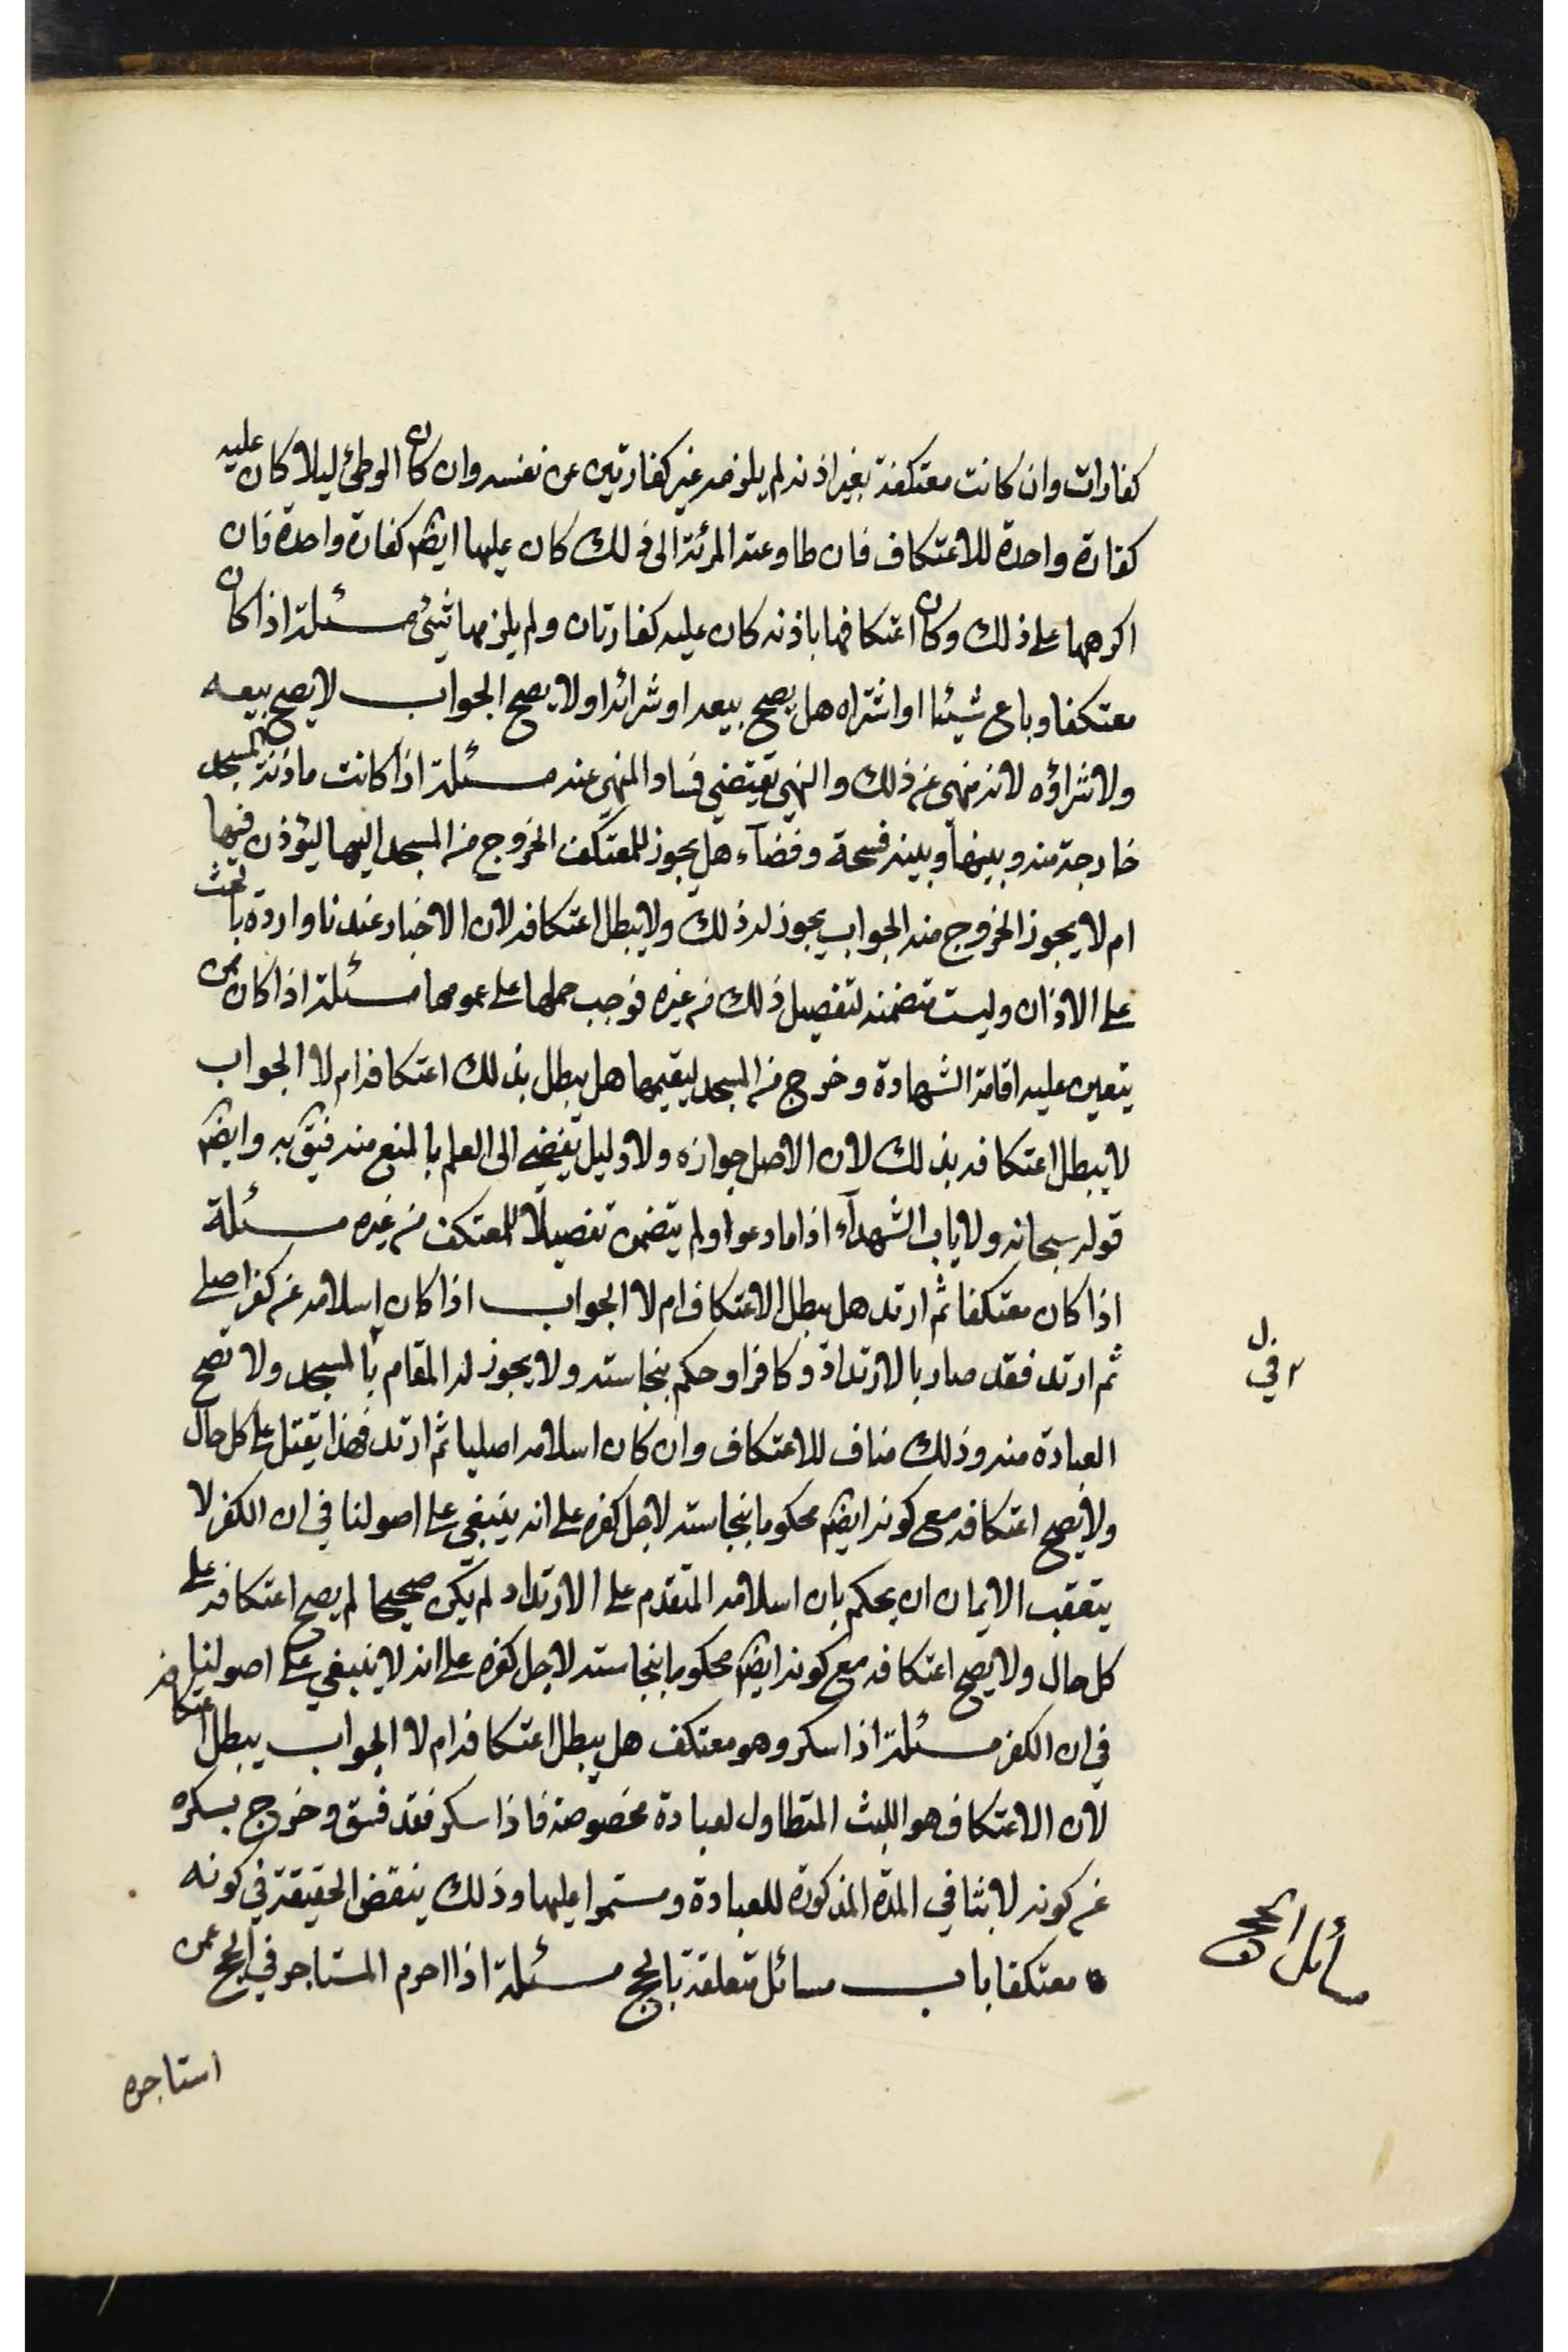 كفارات وان كانت معتكفة بغير اذنه لم يلزمه غير كفارتين عن نفسه وان كان الوطئ ليلا كان عليه
كفارة واحدة للاعتكاف فان طاوعته المرئة الى ذلك كان عليها ايضم كفارة واحدة فان
اكرهها على ذلك وكان اعتكافها باذنه كان عليه كفارتان ولم يلزمها شئ مسئلة اذا كان
معتكفا وباع شيئا او اشتراه هل يصح بيعه او شرائه او لا يصح الجواب لا يصح بيعه
ولا شراؤه لانه منهى عن ذلك والنهى يقتضي فساد المنهى عنه مسئلة اذا كانت ماذنة المسجد
خارجة منه وبينها وبينه فسحة وفضآء هل يجوز للمعتكف الخروج من المسجد اليها ليؤذن فيها
ام لا يجوز الخروج منه الجواب يجوز له ذلك ولا يبطل اعتكافه لان الاخبار عندنا واردة بالحث
على الاذان وليست متضمنه لتفصيل ذلك من غيره فوجب حملها على عمومها مسئلة اذا كان ممن
يتعين عليه اقامة الشهادة وخرج من المسجد ليقيمها هل يبطل بذلك اعتكافه ام لا الجواب
لا يبطل اعتكافه بذلك لان الاصل جوازه ولا دليل يفضى الى العلم بالمنع منه فيق به وايضم
قوله سبحانه ولا ياب الشهدآء اذا ما دعوا ولم يتضمن تفصيلا للمعتكف من غيره مسئلة
اذا كان معتكفا ثم ارتد هل يبطل الاعتكاف ام لا الجواب اذا كان اسلامه عن كفر اصلى
ثم ارتد فقد صار بالارتداد وكافرا وحكم بنجاسته ولا يجوز له المقام بالمسجد ولا تصح
في ل
العبادة منه وذلك مناف للاعتكاف وان كان اسلامه اصليا ثم ارتد فهذا يقتل على كل حال
ولا يصح اعتكافه مع كونه ايضم محكوما بنجاسته لاجل كفره على انه ينبغي على اصولنا في ان الكفر لا
يتعقب الايمان ان يحكم بان اسلامه المتقدم على الارتداد لم يكن صحيحا لم يصح اعتكافه على
كل حال ولا يصح اعتكافه مع كونه ايضم محكوما بنجاسته لاجل كفره على انه لا ينبغي على اصولنا
في ان الكفر مسئلة اذا سكر وهو معتكف هل يبطل اعتكافه ام لا الجواب يبطل اعتكافه
لان الاعتكاف هو اللبث المتطاول لعبادة مخصوصة فاذا سكر فقد فسق وخرج بسكره
عن كونه لابثا في المدة المذكورة للعبادة ومستمرا عليها وذلك ينقض الحقيقة في كونه
معتكفا باب مسائل متعلقة بالحج مسئلة اذا احرم المستاجر في الحج عمن
مسائل الحج
استاجره